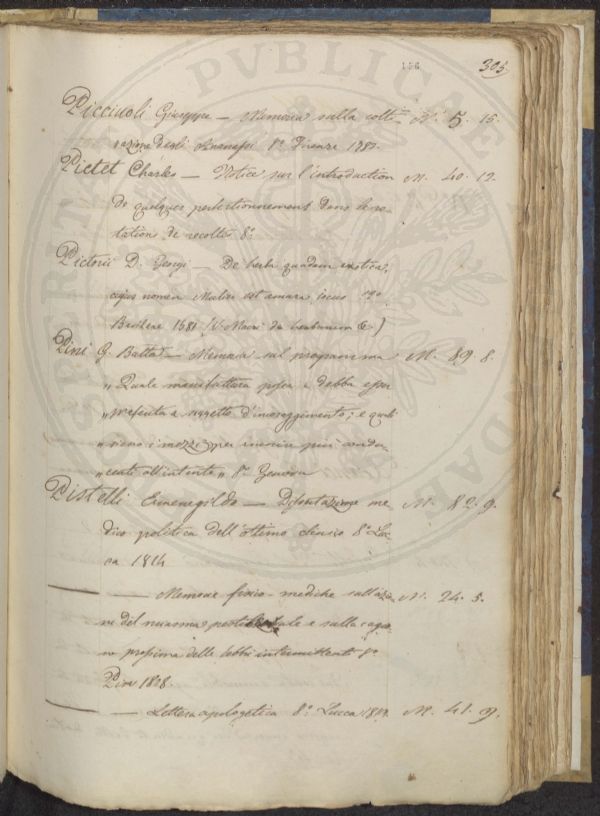 156
305
Piccivoli Giuseppe — Memoria sulla colti- N. 5. 15
vazione degli Ananassi 8° Firenze 178
Pictet Charles — Notice sur l'introduction M. 40. 12.
de quelques perfectionnement dans la ro-
tation de recoltes 8°
Pictorii D. Georgi — De herba quadam exotica,
cujus nomen Mulier est amara 12°
Basileae 1581 (V. Macri de herbarum &)
Pini G. Batta — Memoria sul programma M. 89. 8.
" Quale manifattura possa e debba esser
" preferita a soggetto d'incoraggimento; e quali
" siano i mezzi per riuscire più condu-
" centi all'intento " 8° Genova
Pistelli Ermenegildo — Dissertazione me M. 82. 9.
dico politica dell'ottimo 8° Luc-
ca 1824
— Memorie fisico-mediche sull'azio N. 24. 5.
ne del miasma pestilenziale e sulla cagio
ne prossima delle febbri intermittenti 8°
Pisa 1828
— Lettera apologetica 8° Lucca M. 41. 9.